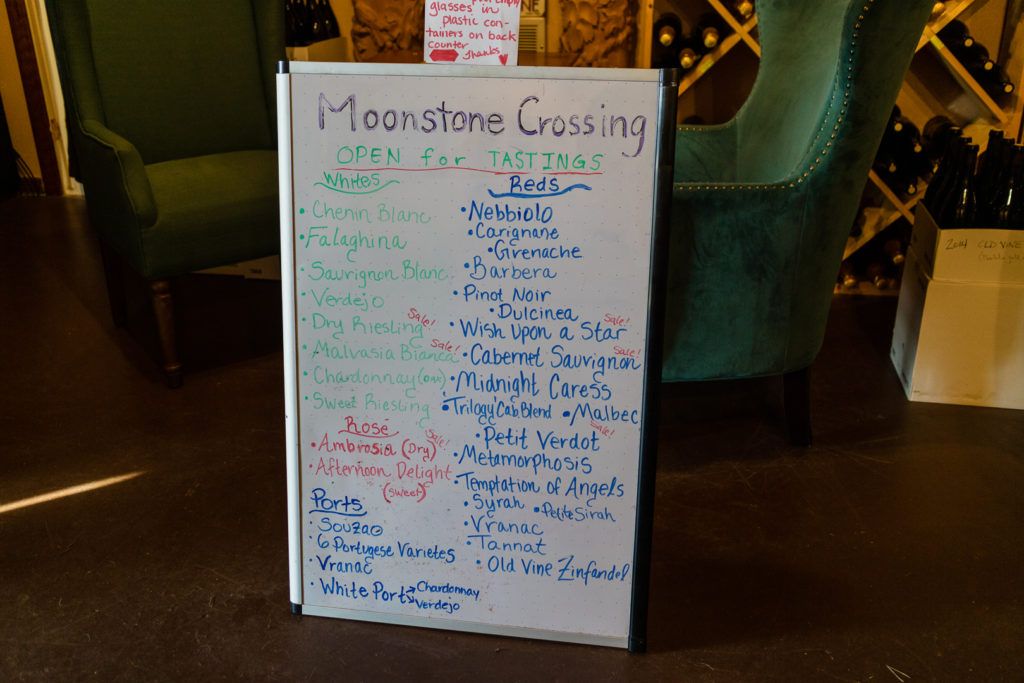 glasses in
plastic con-
tainers on back
counter
Thanks
Moonstone Crossing
OPEN for TASTINGS
Whites
• Chenin Blanc
• Falaghina
• Sauvignon Blanc
• Verdejo
• Dry Riesling Sale!
• Malvasia Bianca Sale!
• Chardonnay
• Sweet Riesling
Rosé
• Ambrosia (Dry) Sale!
• Afternoon Delight
(sweet)
Ports
• Souzao
• 6 Portugese Varietes
• Vranac
• White Port → Chardonnay
→ Verdejo
Reds
• Nebbiolo
• Carignane
• Grenache
• Barbera
• Pinot Noir
• Dulcinea
• Wish Upon a Star Sale!
• Cabernet Sauvignon Sale!
• Midnight Caress
• Trilogy Cab Blend • Malbec
• Petit Verdot Sale!
• Metamorphosis
• Temptation of Angels
• Syrah • Petite Sirah
• Vranac
• Tannat
• Old Vine Zinfandel
2014 OLD VINE